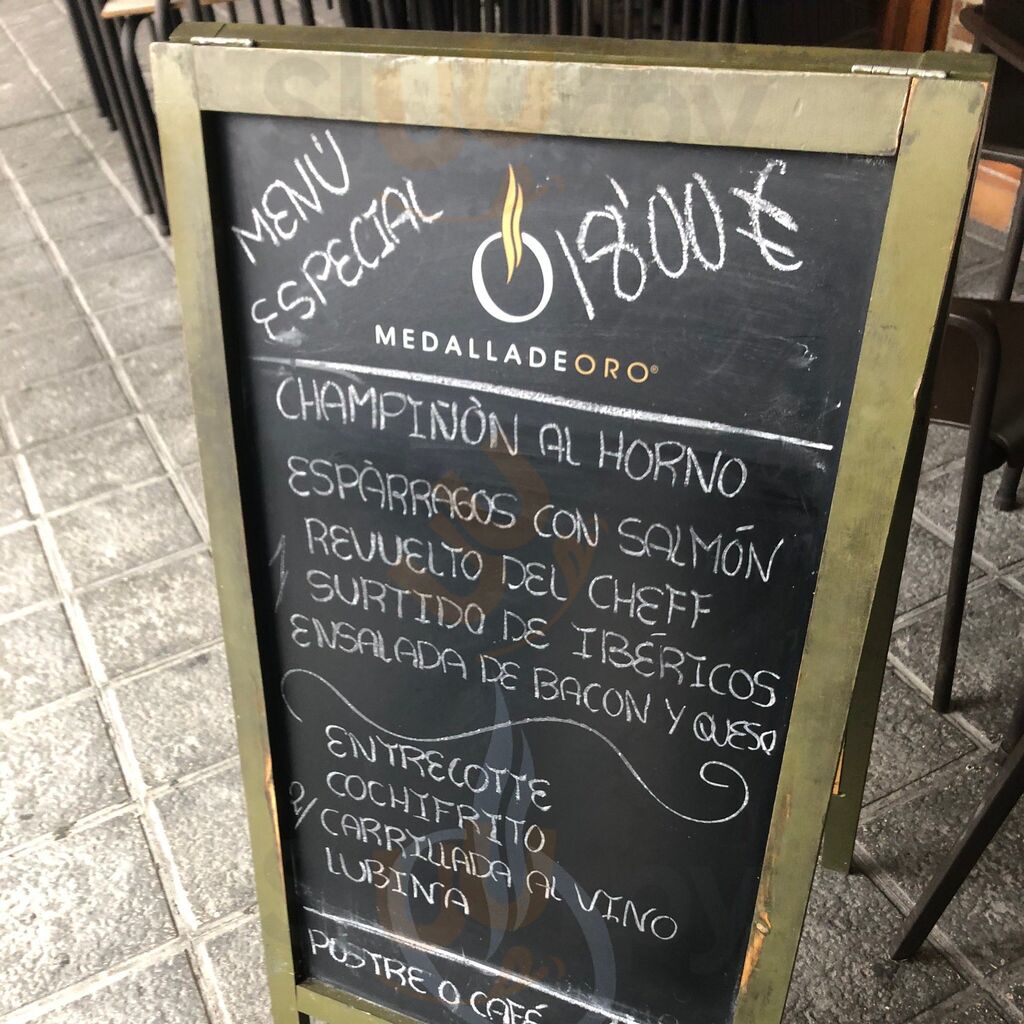 MENÚ
ESPECIAL
18'00 €
MEDALLADEORO®
CHAMPIÑÒN AL HORNO
ESPÀRRAGOS CON SALMÓN
1/ REVUELTO DEL CHEFF
SURTIDO DE IBÉRICOS
ENSALADA DE BACON Y QUESO
ENTRECOTTE
COCHIFRITO
2/ CARRILLADA AL VINO
LUBINA
POSTRE O CAFÉ